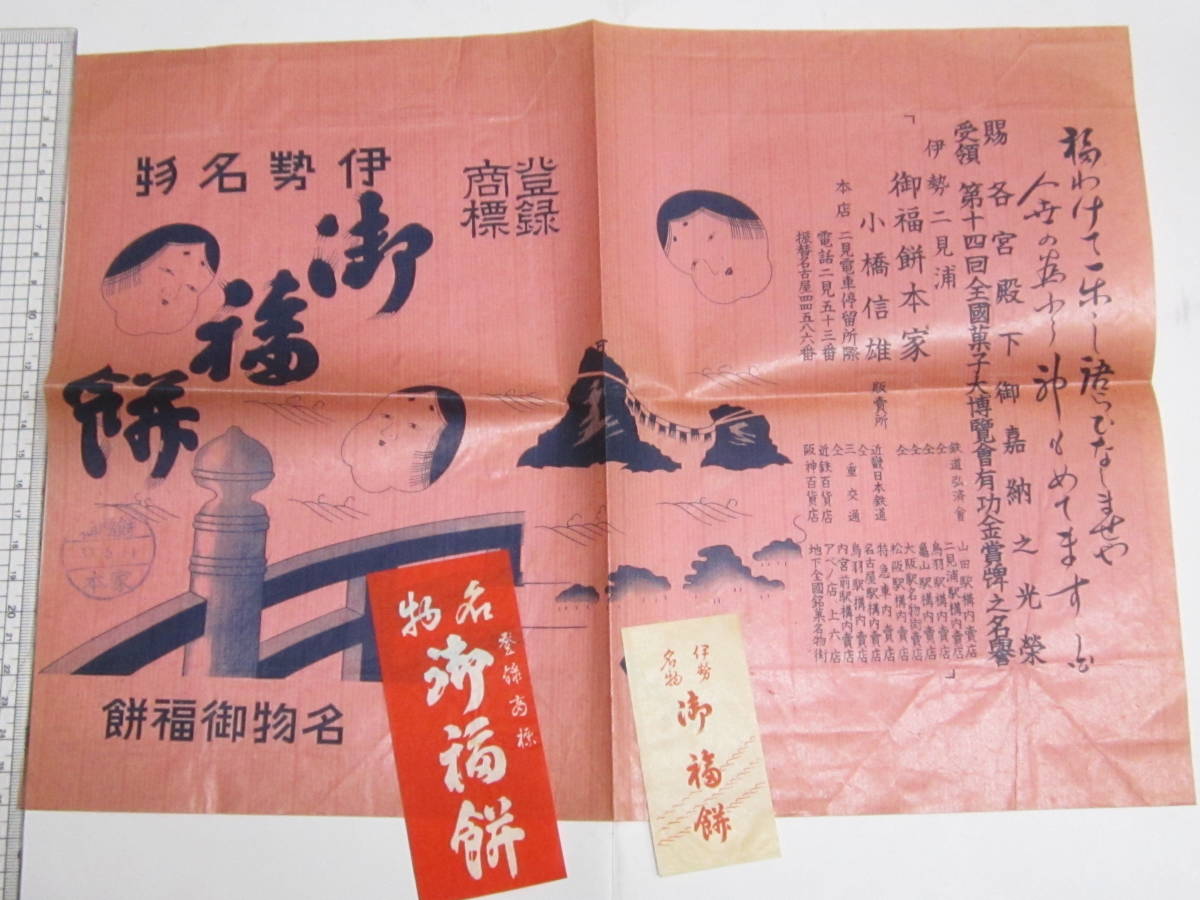 賜 各宮殿下御嘉納之光榮
受領 第十四回全國菓子大博覽會有功金賞牌之名譽
伊勢二見浦
御福餅本家
小橋信雄
本店 二見電車停留所際
電話二見五十三番
振替名古屋四四五八六番
販賣所
鉄道弘済會 山田駅構内賣店
仝 二見浦駅構内賣店
仝 鳥羽駅構内賣店
仝 亀山駅構内賣店
仝 大阪駅名物街賣店
近畿日本鉄道 松阪駅構内賣店
仝 特急車内賣店
仝 名古屋駅構内賣店
三重交通 鳥羽駅構内賣店
仝 内宮前駅構内賣店
近鉄百貨店 アベノ店 上六店
阪神百貨店 地下全國銘菓名物街
登録
商標
伊勢名物
御福餅
名物御福餅
本家
登録商標
名物
御福餅
伊勢
名物
御福餅